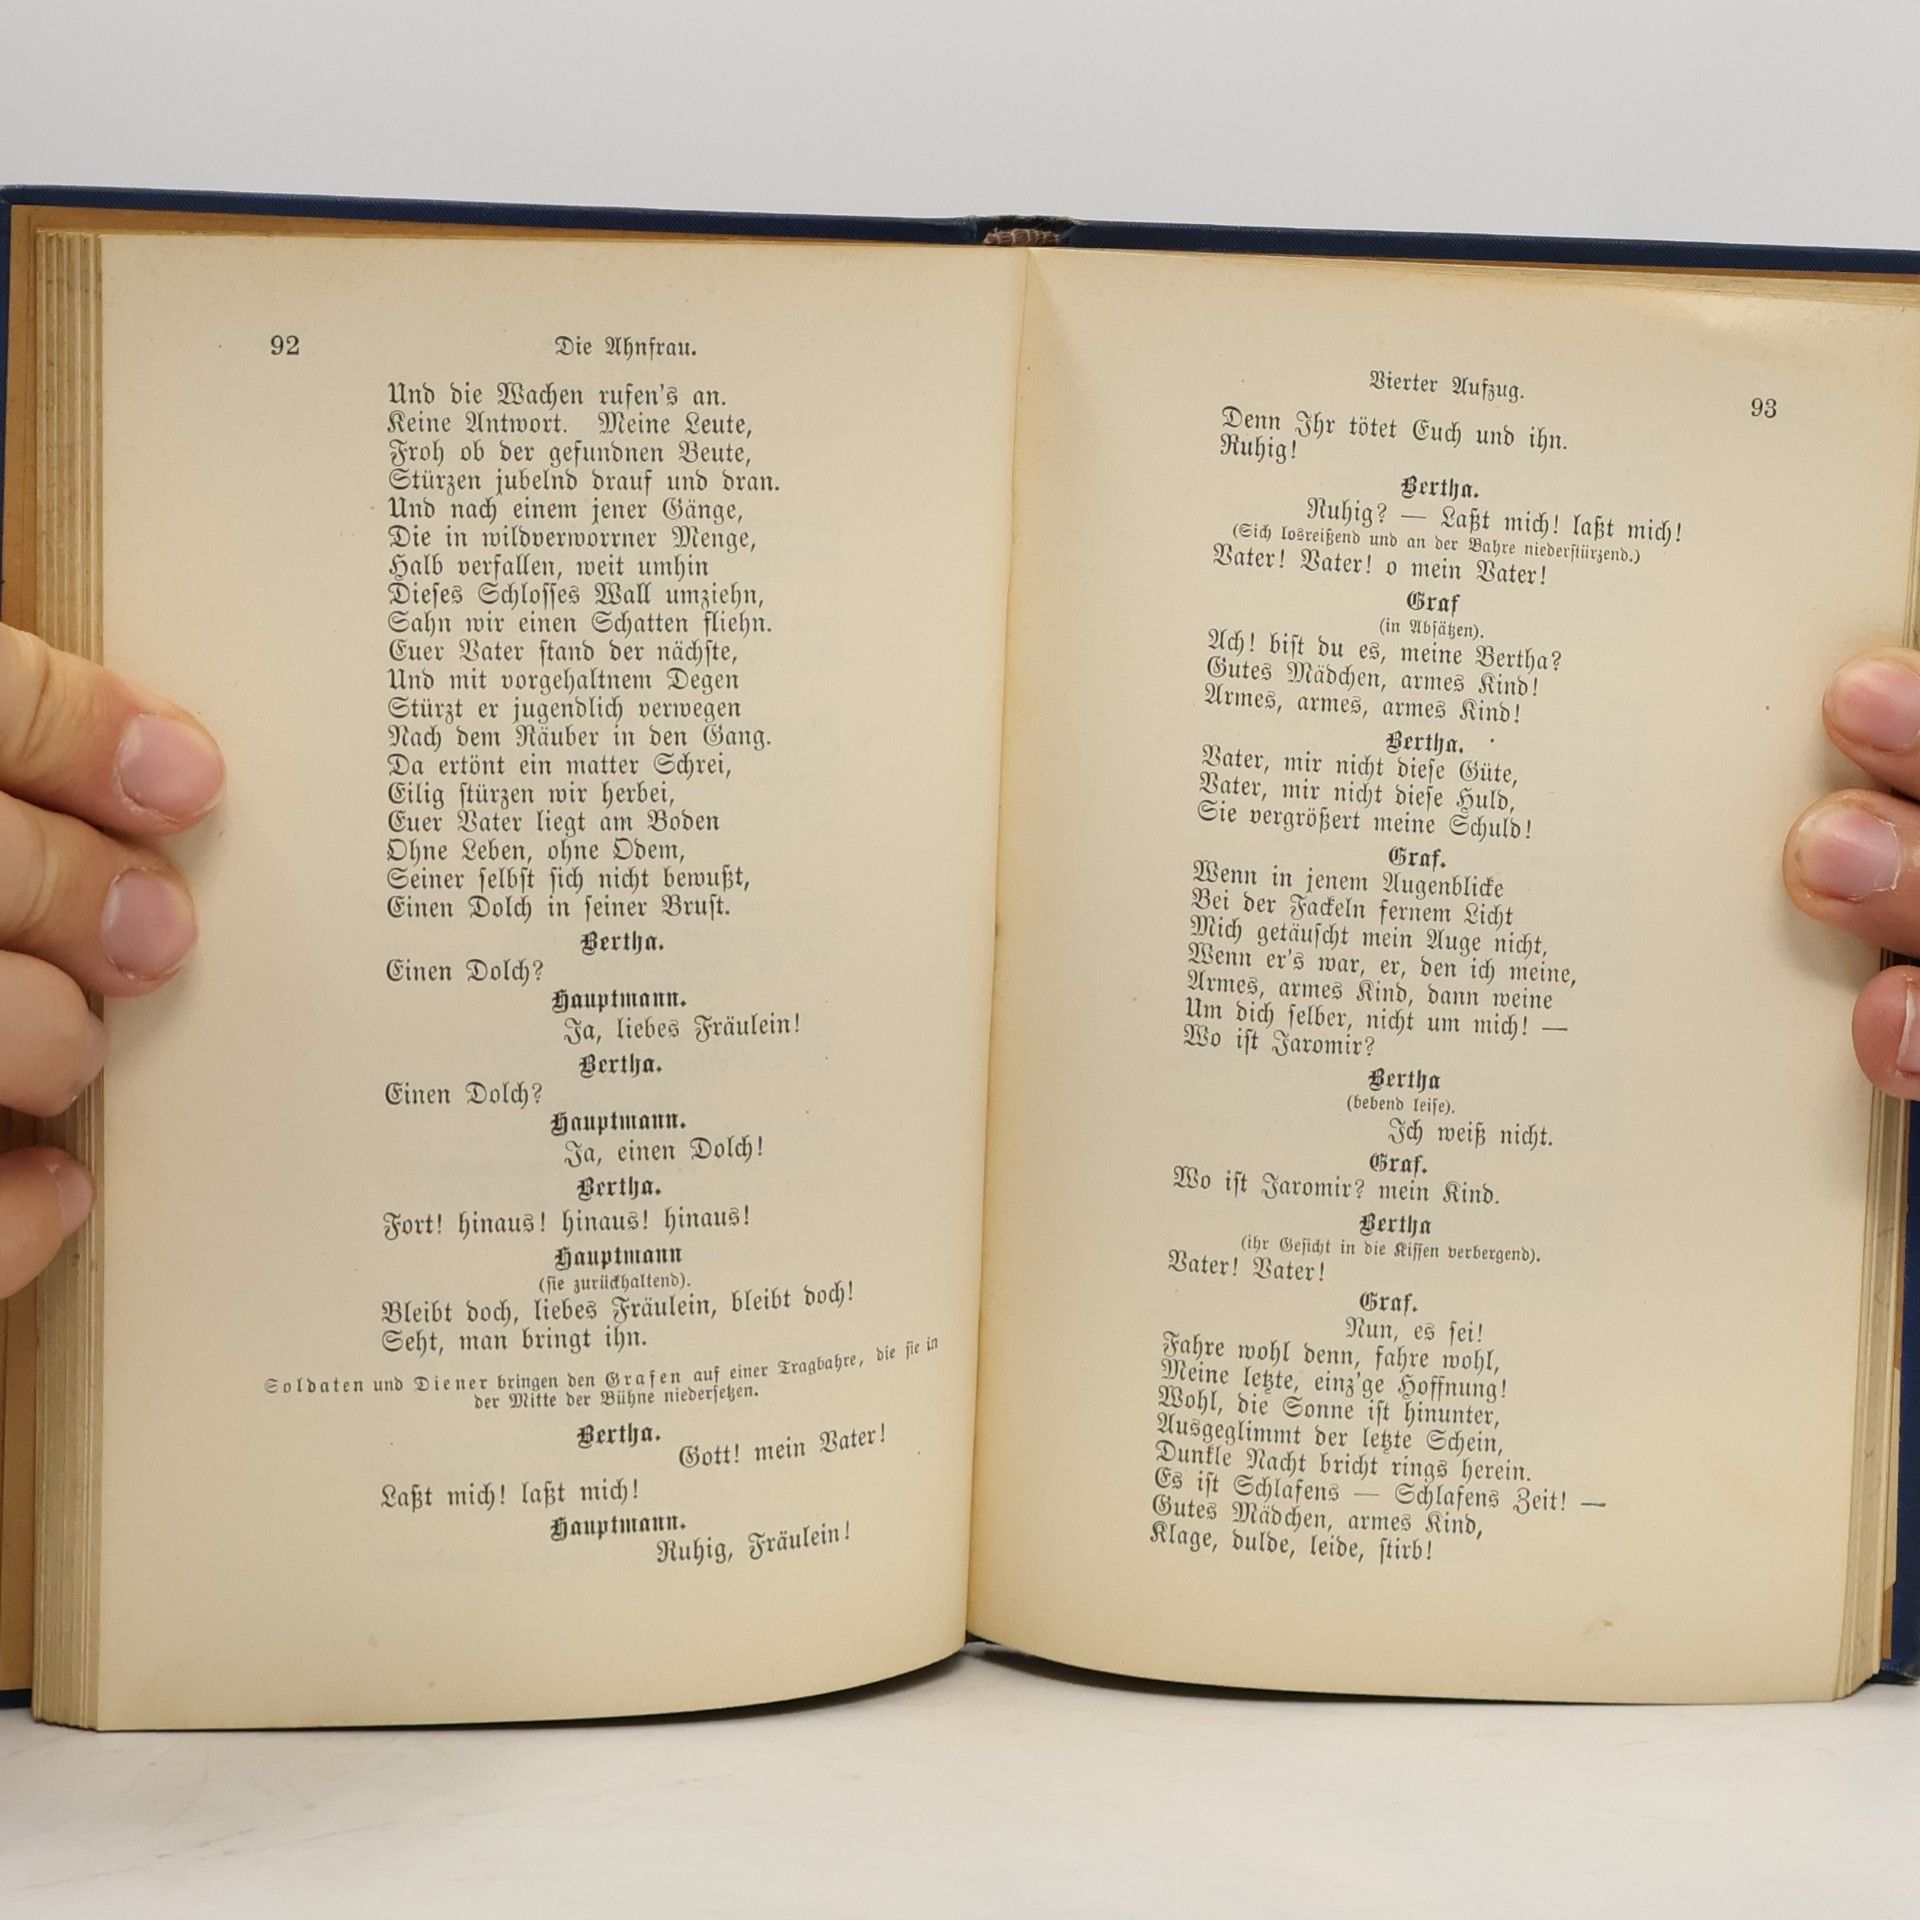 92
Die Ahnfrau.
Und die Wachen rufen's an.
Keine Antwort. Meine Leute,
Froh ob der gefundnen Beute,
Stürzen jubelnd drauf und dran.
Und nach einem jener Gänge,
Die in wildverworrner Menge,
Halb verfallen, weit umhin
Dieses Schlosses Wall umziehn,
Sahn wir einen Schatten fliehn.
Euer Vater stand der nächste,
Und mit vorgehaltnem Degen
Stürzt er jugendlich verwegen
Nach dem Räuber in den Gang.
Da ertönt ein matter Schrei,
Eilig stürzen wir herbei,
Euer Vater liegt am Boden
Ohne Leben, ohne Odem,
Seiner selbst sich nicht bewußt,
Einen Dolch in seiner Brust.
Bertha.
Einen Dolch?
Hauptmann.
Ja, liebes Fräulein!
Bertha.
Einen Dolch?
Hauptmann.
Ja, einen Dolch!
Bertha.
Fort! hinaus! hinaus! hinaus!
Hauptmann
(sie zurückhaltend).
Bleibt doch, liebes Fräulein, bleibt doch!
Seht, man bringt ihn.
Soldaten und Diener bringen den Grafen auf einer Tragbahre, die sie in
der Mitte der Bühne niedersetzen.
Bertha.
Gott! mein Vater!
Laßt mich! laßt mich!
Hauptmann.
Ruhig, Fräulein!
Vierter Aufzug.
93
Denn Ihr tötet Euch und ihn.
Ruhig!
Bertha.
Ruhig? — Laßt mich! laßt mich!
(Sich losreißend und an der Bahre niederstürzend.)
Vater! Vater! o mein Vater!
Graf
(in Absätzen).
Ach! bist du es, meine Bertha?
Gutes Mädchen, armes Kind!
Armes, armes, armes Kind!
Bertha.
Vater, mir nicht diese Güte,
Vater, mir nicht diese Huld,
Sie vergrößert meine Schuld!
Graf.
Wenn in jenem Augenblicke
Bei der Fackeln fernem Licht
Mich getäuscht mein Auge nicht,
Wenn er's war, er, den ich meine,
Armes, armes Kind, dann weine
Um dich selber, nicht um mich! —
Wo ist Jaromir?
Bertha
(bebend leise).
Ich weiß nicht.
Graf.
Wo ist Jaromir? mein Kind.
Bertha
(ihr Gesicht in die Kissen verbergend).
Vater! Vater!
Graf.
Nun, es sei!
Fahre wohl denn, fahre wohl,
Meine letzte, einz'ge Hoffnung!
Wohl, die Sonne ist hinunter,
Ausgeglimmt der letzte Schein,
Dunkle Nacht bricht rings herein.
Es ist Schlafens — Schlafens Zeit! —
Gutes Mädchen, armes Kind,
Klage, dulde, leide, stirb!